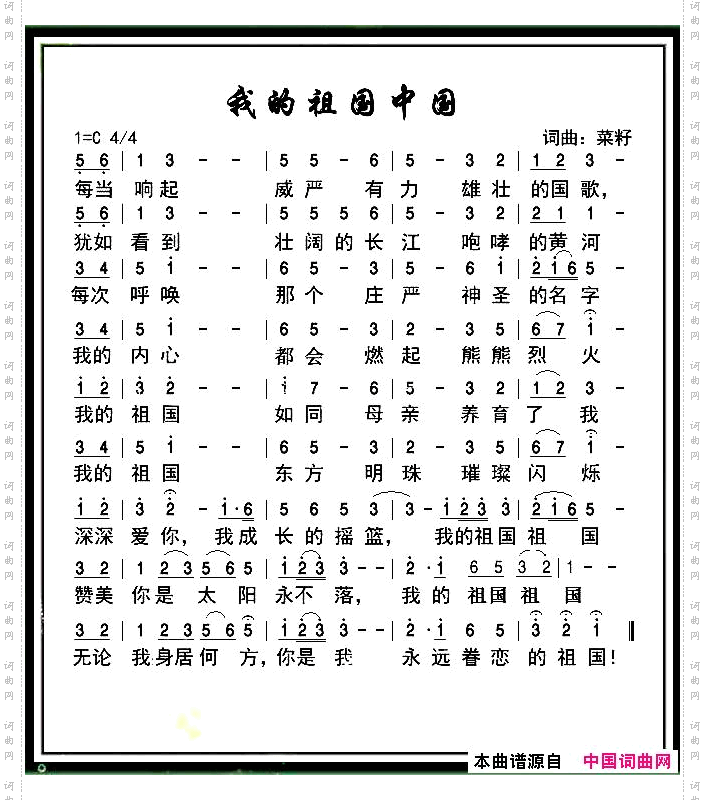 我的祖国中国
1=C 4/4
词曲：菜籽
5 6 | 1 3 - - | 5 5 - 6 | 5 - 3 2 | 1 2 3 -
每当 响起 威严 有力 雄壮 的国歌，
5 6 | 1 3 - - | 5 5 5 6 | 5 - 3 2 | 2 1 1 -
犹如 看到 壮阔的长江 咆哮 的黄河
3 4 | 5 1 - - | 6 5 - 3 | 3 - 6 1 | 2 1 6 5 -
每次 呼唤 那个 庄严 神圣 的名字
3 4 | 5 1 - - | 6 5 - 3 | 2 - 3 5 | 6 7 1 -
我的 内心 都会 燃起 熊熊 烈 火
1 2 | 3 2 - - | 1 7 - 6 | 5 - 3 2 | 1 2 3 -
我的 祖国 如同 母亲 养育 了 我
3 4 | 5 1 - - | 6 5 - 3 | 2 - 3 5 | 6 7 1 -
我的 祖国 东方 明珠 璀璨 闪 烁
1 2 | 3 2 - 1·6 | 5 6 5 3 | 3 - 1 2 3 3 | 2 1 6 5 -
深深 爱你， 我成 长的摇篮， 我的祖国 祖 国
3 2 | 1 2 3 5 6 5 | 1 2 3 3 - - | 2 · 1 6 5 3 2 | 1 - -
赞美 你是 太 阳 永不 落， 我 的 祖国 祖 国
3 2 | 1 2 3 5 6 5 | 1 2 3 3 - - | 2 · 1 6 5 | 3 2 1 ‖
无论 我身居何 方，你是 我 永远眷恋 的祖国！
本曲谱源自 中国词曲网
词曲网
词曲网
词曲网
词曲网
词曲网
词曲网
词曲网
词曲网
词曲网
词曲网
词曲网
词曲网
词曲网
词曲网